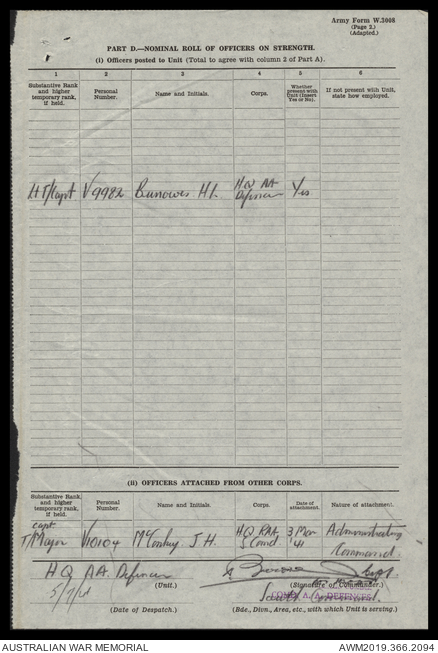 Army Form W.3008
(Page 2.)
(Adapted.)
PART D.—NOMINAL ROLL OF OFFICERS ON STRENGTH.
(i) Officers posted to Unit (Total to agree with column 2 of Part A).
1 2 3 4 5 6
Substantive Rank and higher temporary rank, if held. Personal Number. Name and Initials. Corps. Whether present with Unit (Insert Yes or No). If not present with Unit, state how employed.
Lt T/Capt V9982 Burrowes H.L. H.Q AA Defences Yes
(ii) OFFICERS ATTACHED FROM OTHER CORPS.
Substantive Rank and higher temporary rank, if held. Personal Number. Name and Initials. Corps. Date of attachment. Nature of attachment.
Capt T/Major V10104 McConkey J.H. H.Q. RAA S Comd. 3 Mar '41 Administering Command.
H.Q. A.A. Defences Capt.
(Unit.) (Signature of Commander.)
5/7/41 COMD. A. A. DEFENCES
South Command
(Date of Despatch.) (Bde., Divn., Area, etc., with which Unit is serving.)
AUSTRALIAN WAR MEMORIAL AWM2019.366.2094